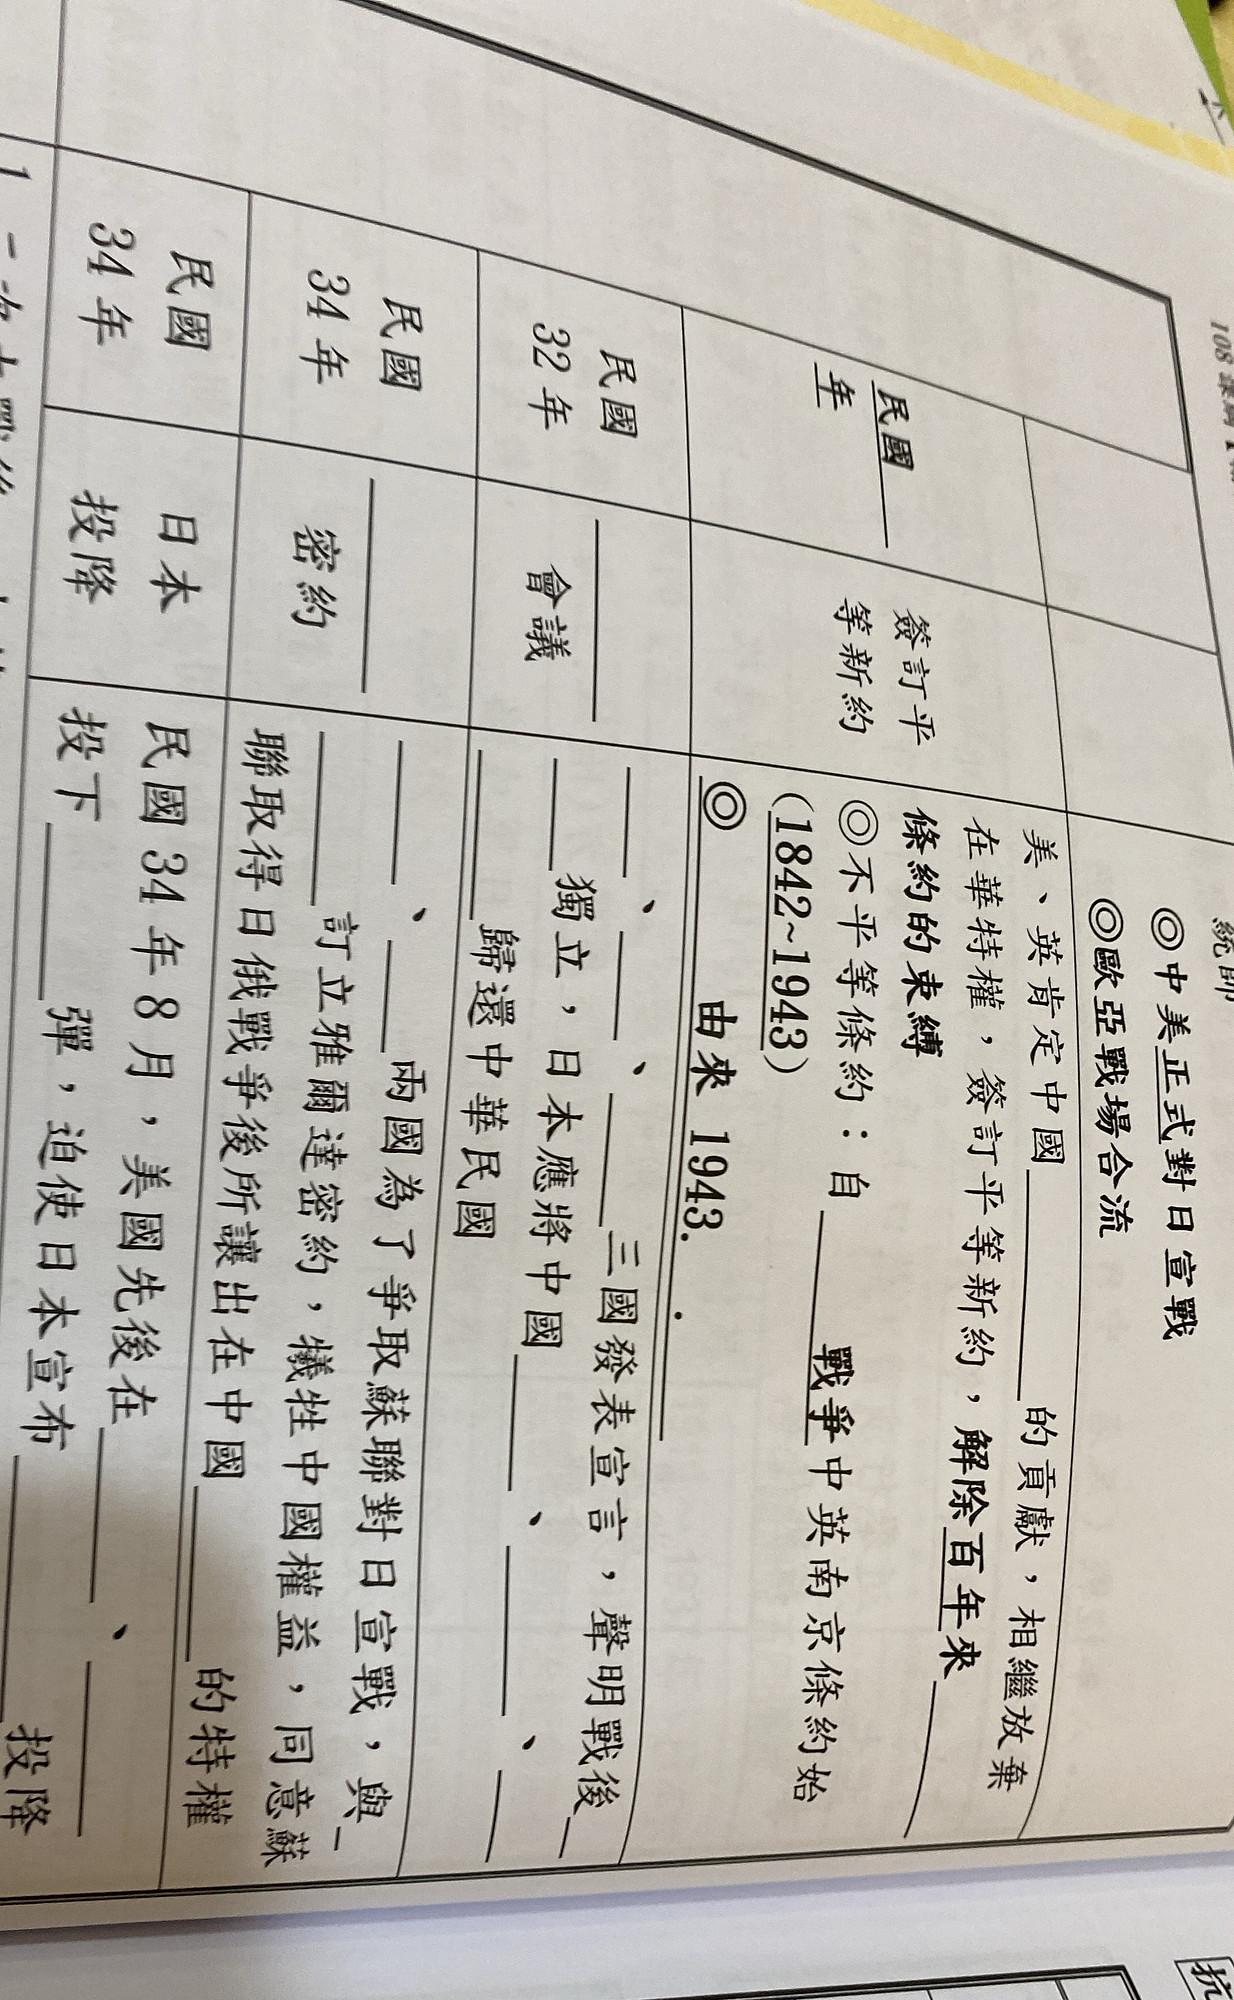 108 課綱
統帥
◎中美正式對日宣戰
◎歐亞戰場合流
民國____
年
簽訂平
等新約
美、英肯定中國________的貢獻，相繼放棄
在華特權，簽訂平等新約，解除百年來______
條約的束縛
◎不平等條約：自______戰爭中英南京條約始
(1842~1943)
◎　　　　由來 1943. .
民國
32 年
______
會議
____、____、____三國發表宣言，聲明戰後_
____獨立，日本應將中國____、____、___
______歸還中華民國
民國
34 年
______
密約
____、____兩國為了爭取蘇聯對日宣戰，與_
______訂立雅爾達密約，犧牲中國權益，同意蘇
聯取得日俄戰爭後所讓出在中國______的特權
民國
34 年
日本
投降
民國 34 年 8 月，美國先後在______、______
投下______彈，迫使日本宣布______投降
抗